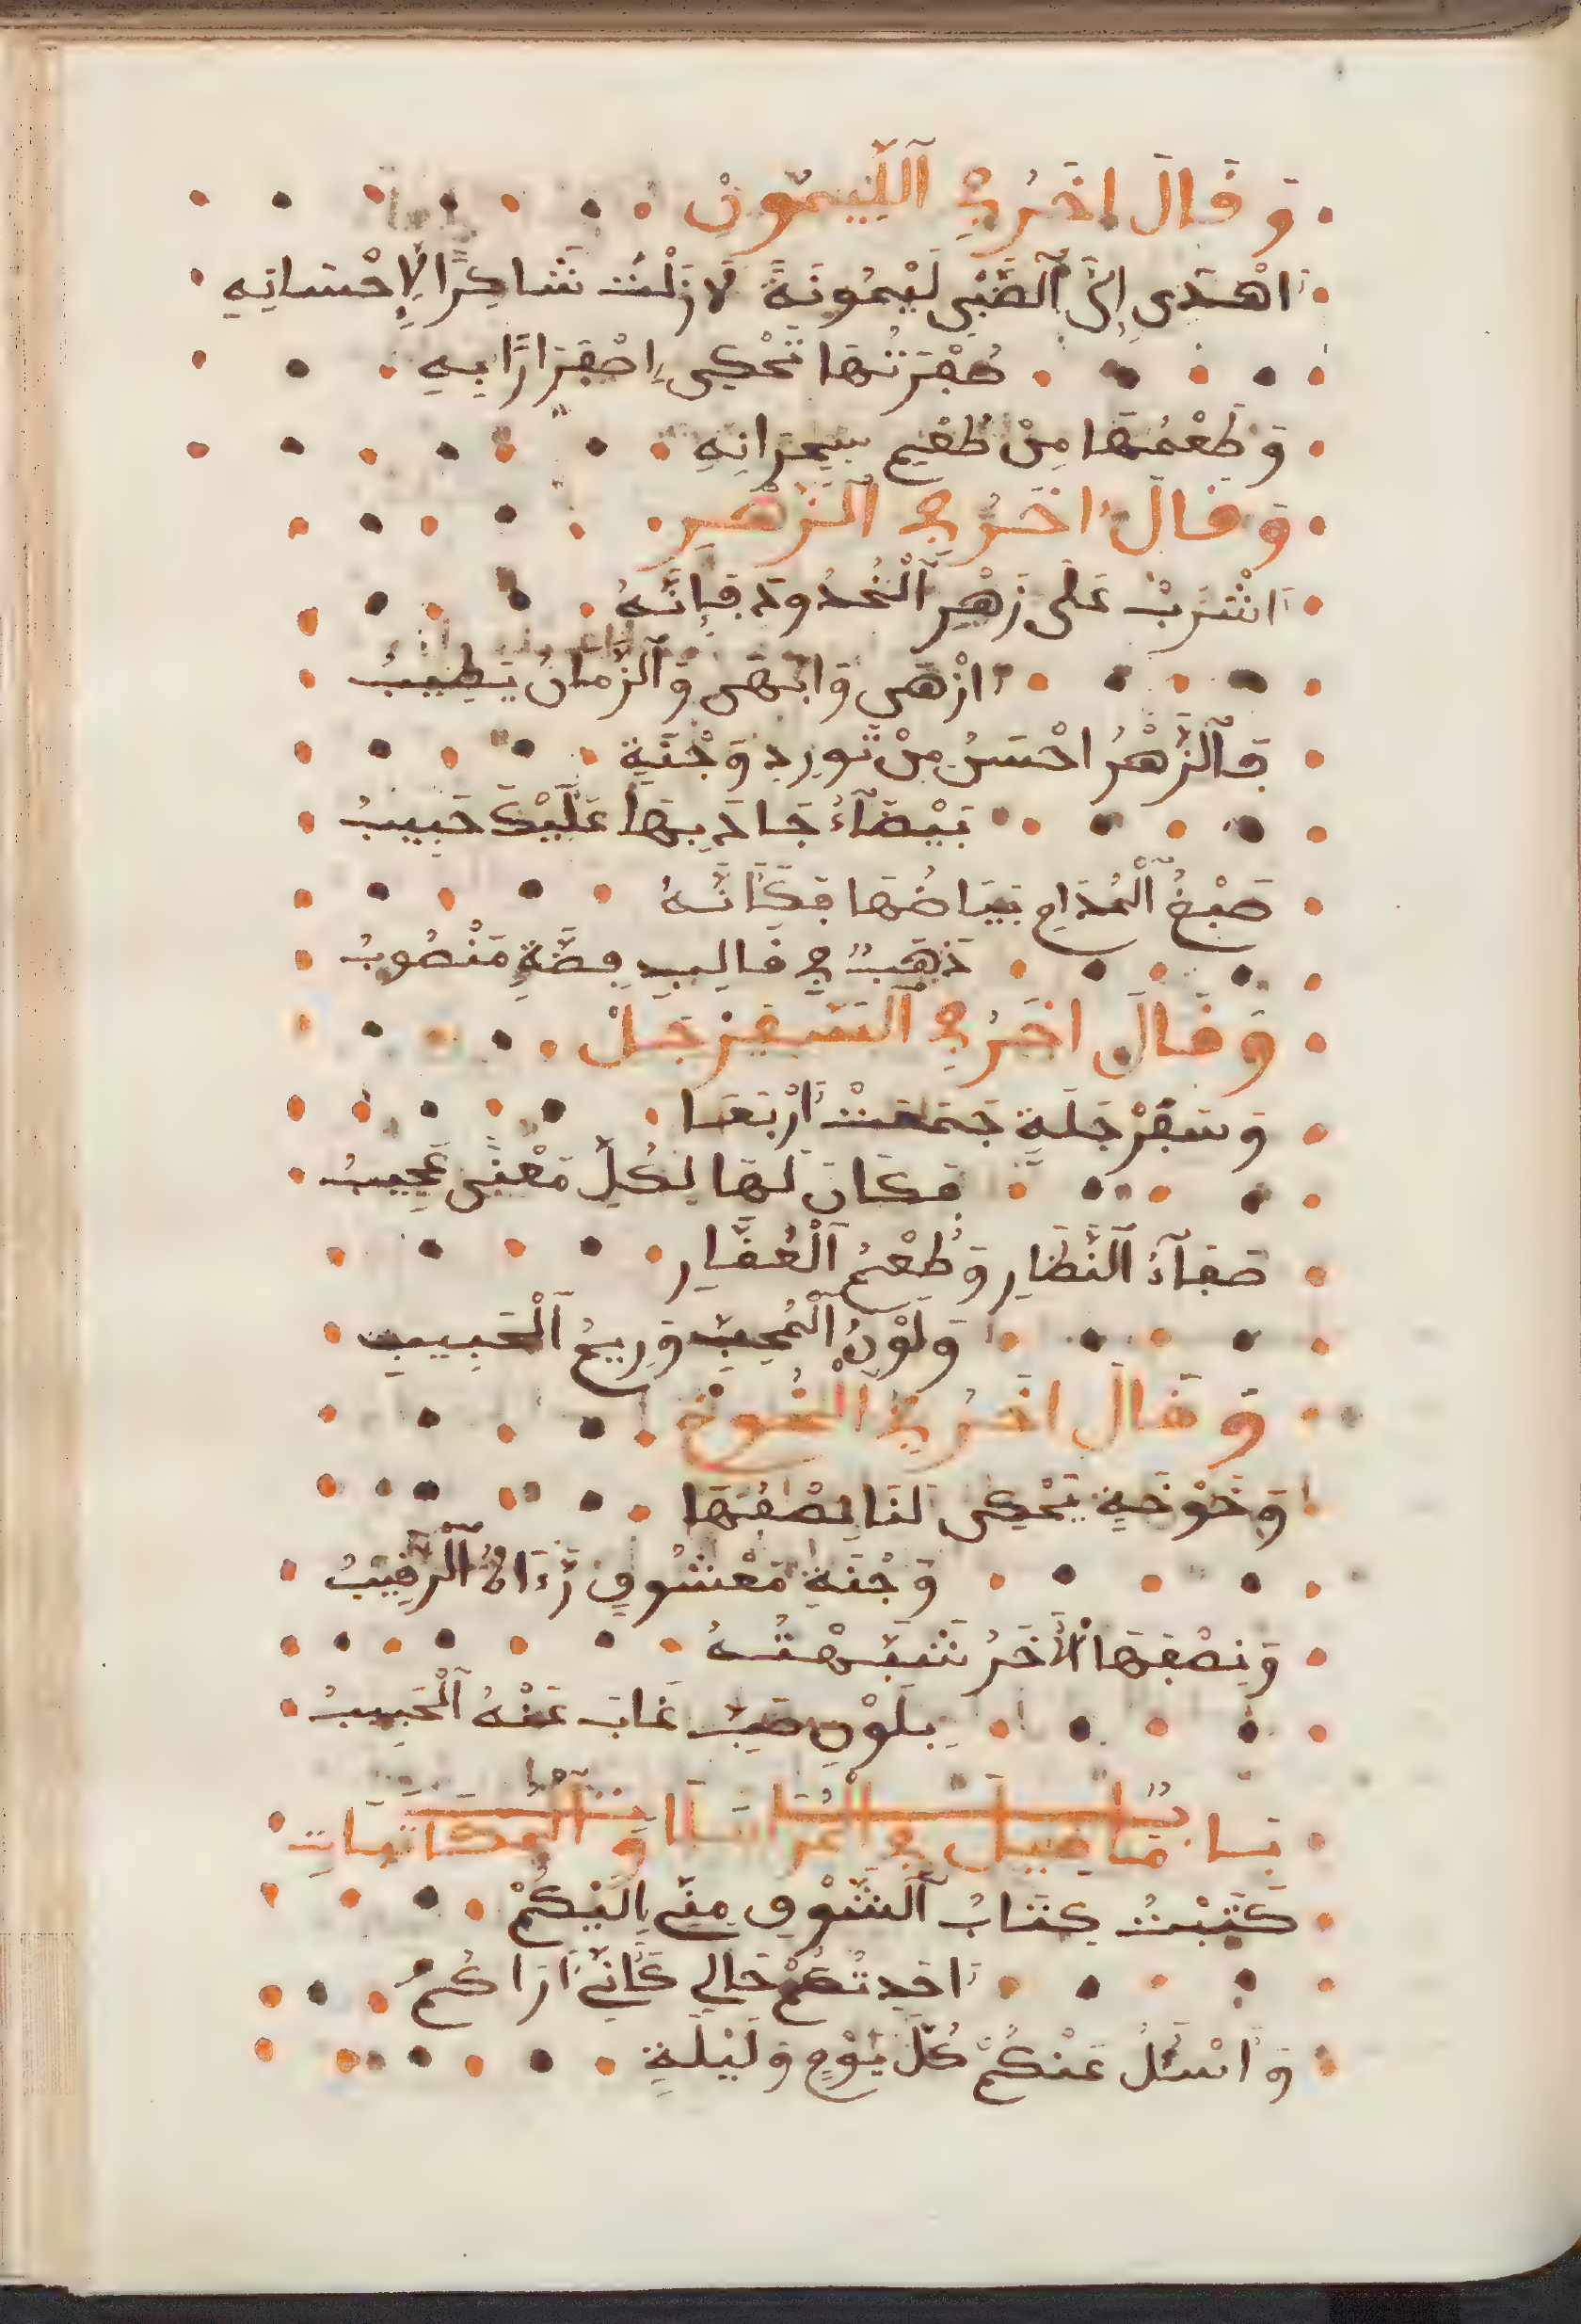 وَقَالَ اخَرُ فِي اَللِّيمُونِ
اَهْدَى إِلَيَّ اَلصَّبِي لَيْمُونَةً لَا زَلْتُ شَاكِرًا لِإِحْسَانِهِ
صُفْرَتُهَا تَحْكِي اِصْفِرَارًا بِهِ
وَطَعْمُهَا مِنْ طَعْمِ هِجْرَانِهِ
وَقَالَ اخَرُ فِي اَلزَّهْرِ
اَشْرَبْ عَلَى زَهْرِ اَلْخُدُودِ فَإِنَّهُ
اَزْهَى وَابْهَى وَاَلزَّمَانُ يَطِيبُ
فَاَلزَّهْرُ احْسَنُ مِنْ تَورِدِ وَجْنَةٍ
بَيْضَآءُ جَادَ بِهَا عَلَيْكَ حَبِيبُ
صَبْغُ اَلْمُدَامِ بَيَاضُهَا فَكَأَنَّهُ
ذَهَبٌ فِي قَالِبِ فِضَّةٍ مَنْصُوبُ
وَقَالَ اخَرُ فِي اَلسَّفَرْجَلْ
وَسَفَرْجَلَةٍ جَمَعَتْ اَرْبَعَا
فَكَانَ لَهَا لِكُلِّ مَعْنًى عَجِيبُ
صَفَآءُ اَلنُّظَارِ وَطَعْمُ اَلْعُقَارِ
وَلَوْنُ اَلْمُحِبِّ وَرِيحُ اَلْحَبِيبِ
وَقَالَ اخَرُ فِي اَلْخُوخْ
وَخَوْخَةٍ يَحْكِي لَنَا نِصْفُهَا
وَجْنَةِ مَعْشُوقٍ رَءَاهُ اَلرَّقِيبُ
وَنِصْفِهَا اَلْأَخَرُ شَبَّهْتُهُ
بِلَوْنِ صَبٍّ غَابَ عَنْهُ اَلْحَبِيبُ
بَابُ مَا قِيلَ فِي الْمُرَاسَلَاتِ وَالْمُكَاتَبَاتِ
كَتَبْتُ كِتَابُ اَلشَّوْقِ مِنِّي إِلَيْكُمْ
وَاسْئَلُ عَنْكُمْ كُلَّ يَوْمٍ وَلَيْلَةٍ